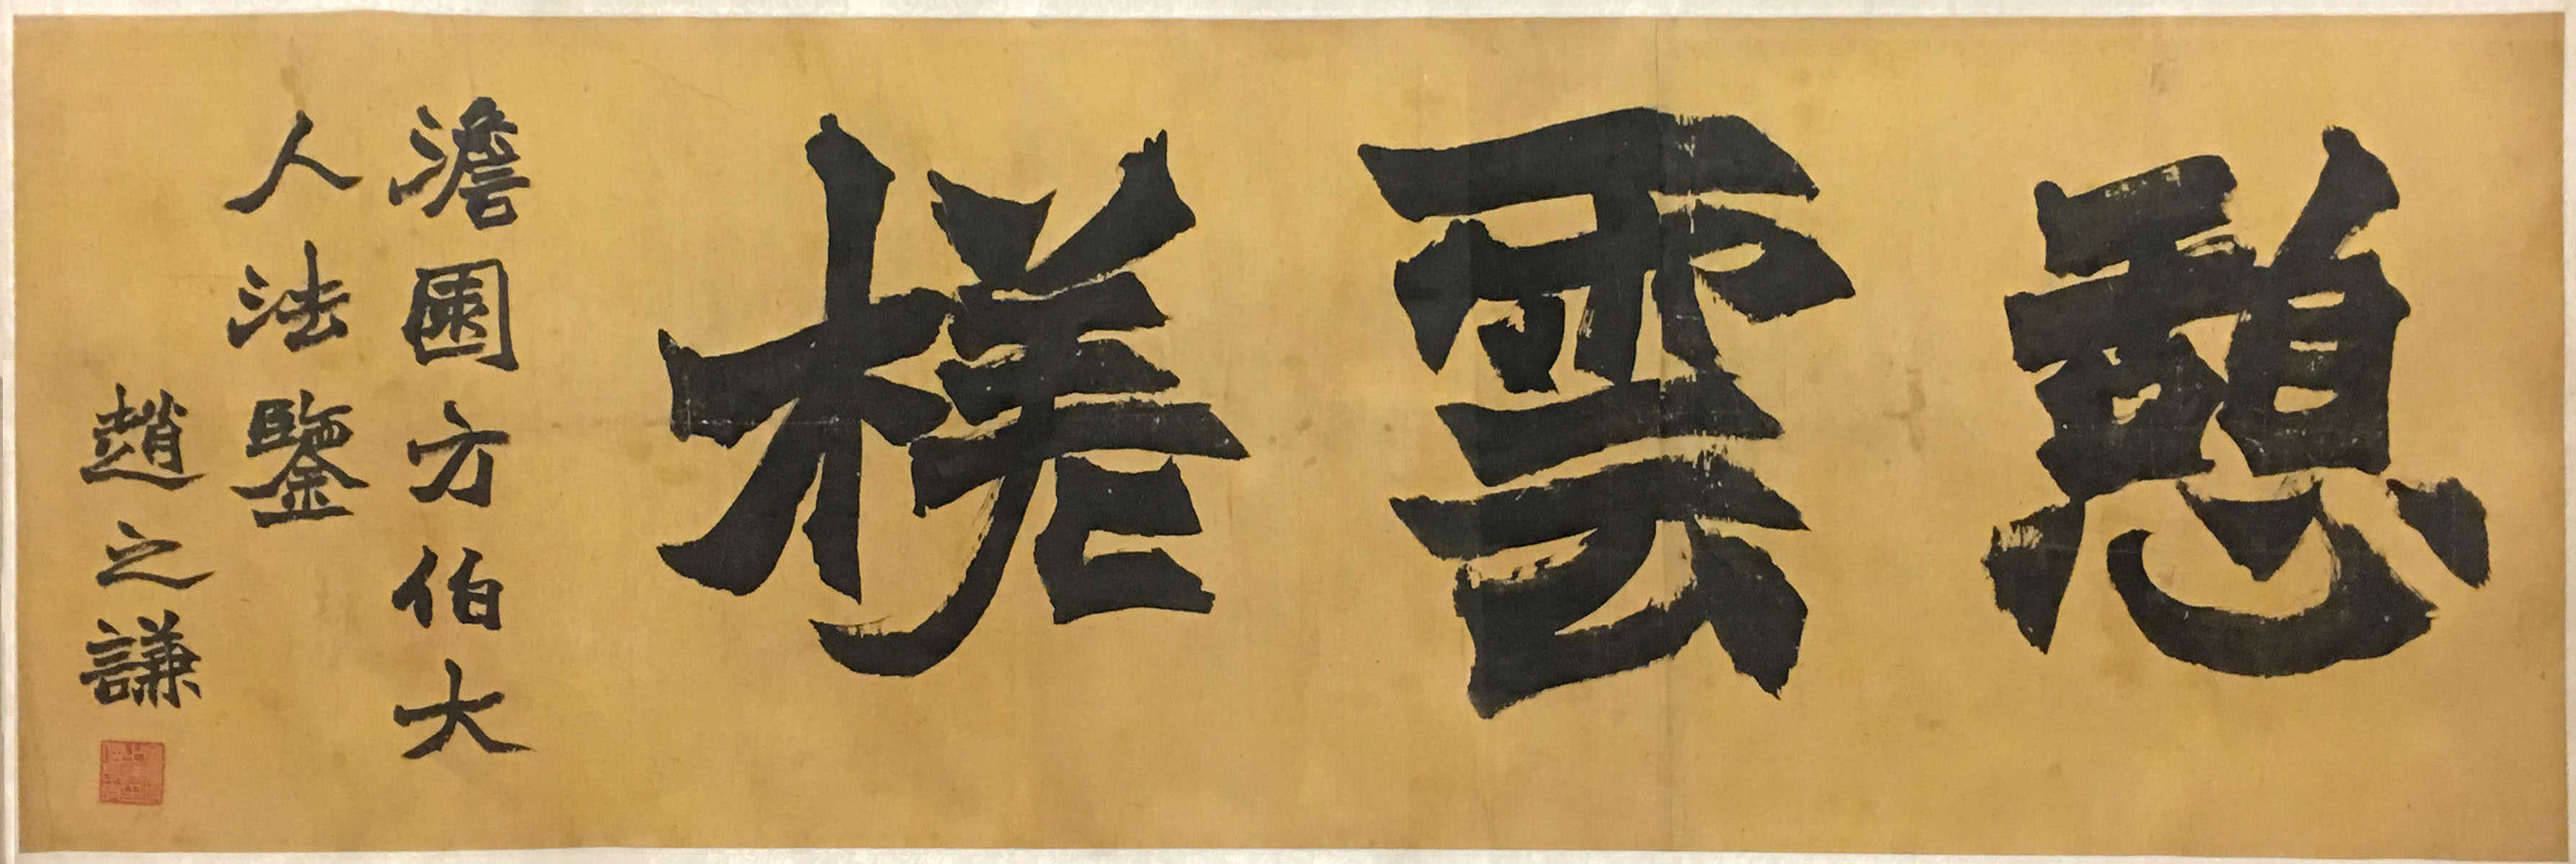 憩雲槎
澹園方伯大
人法鑒
趙之謙